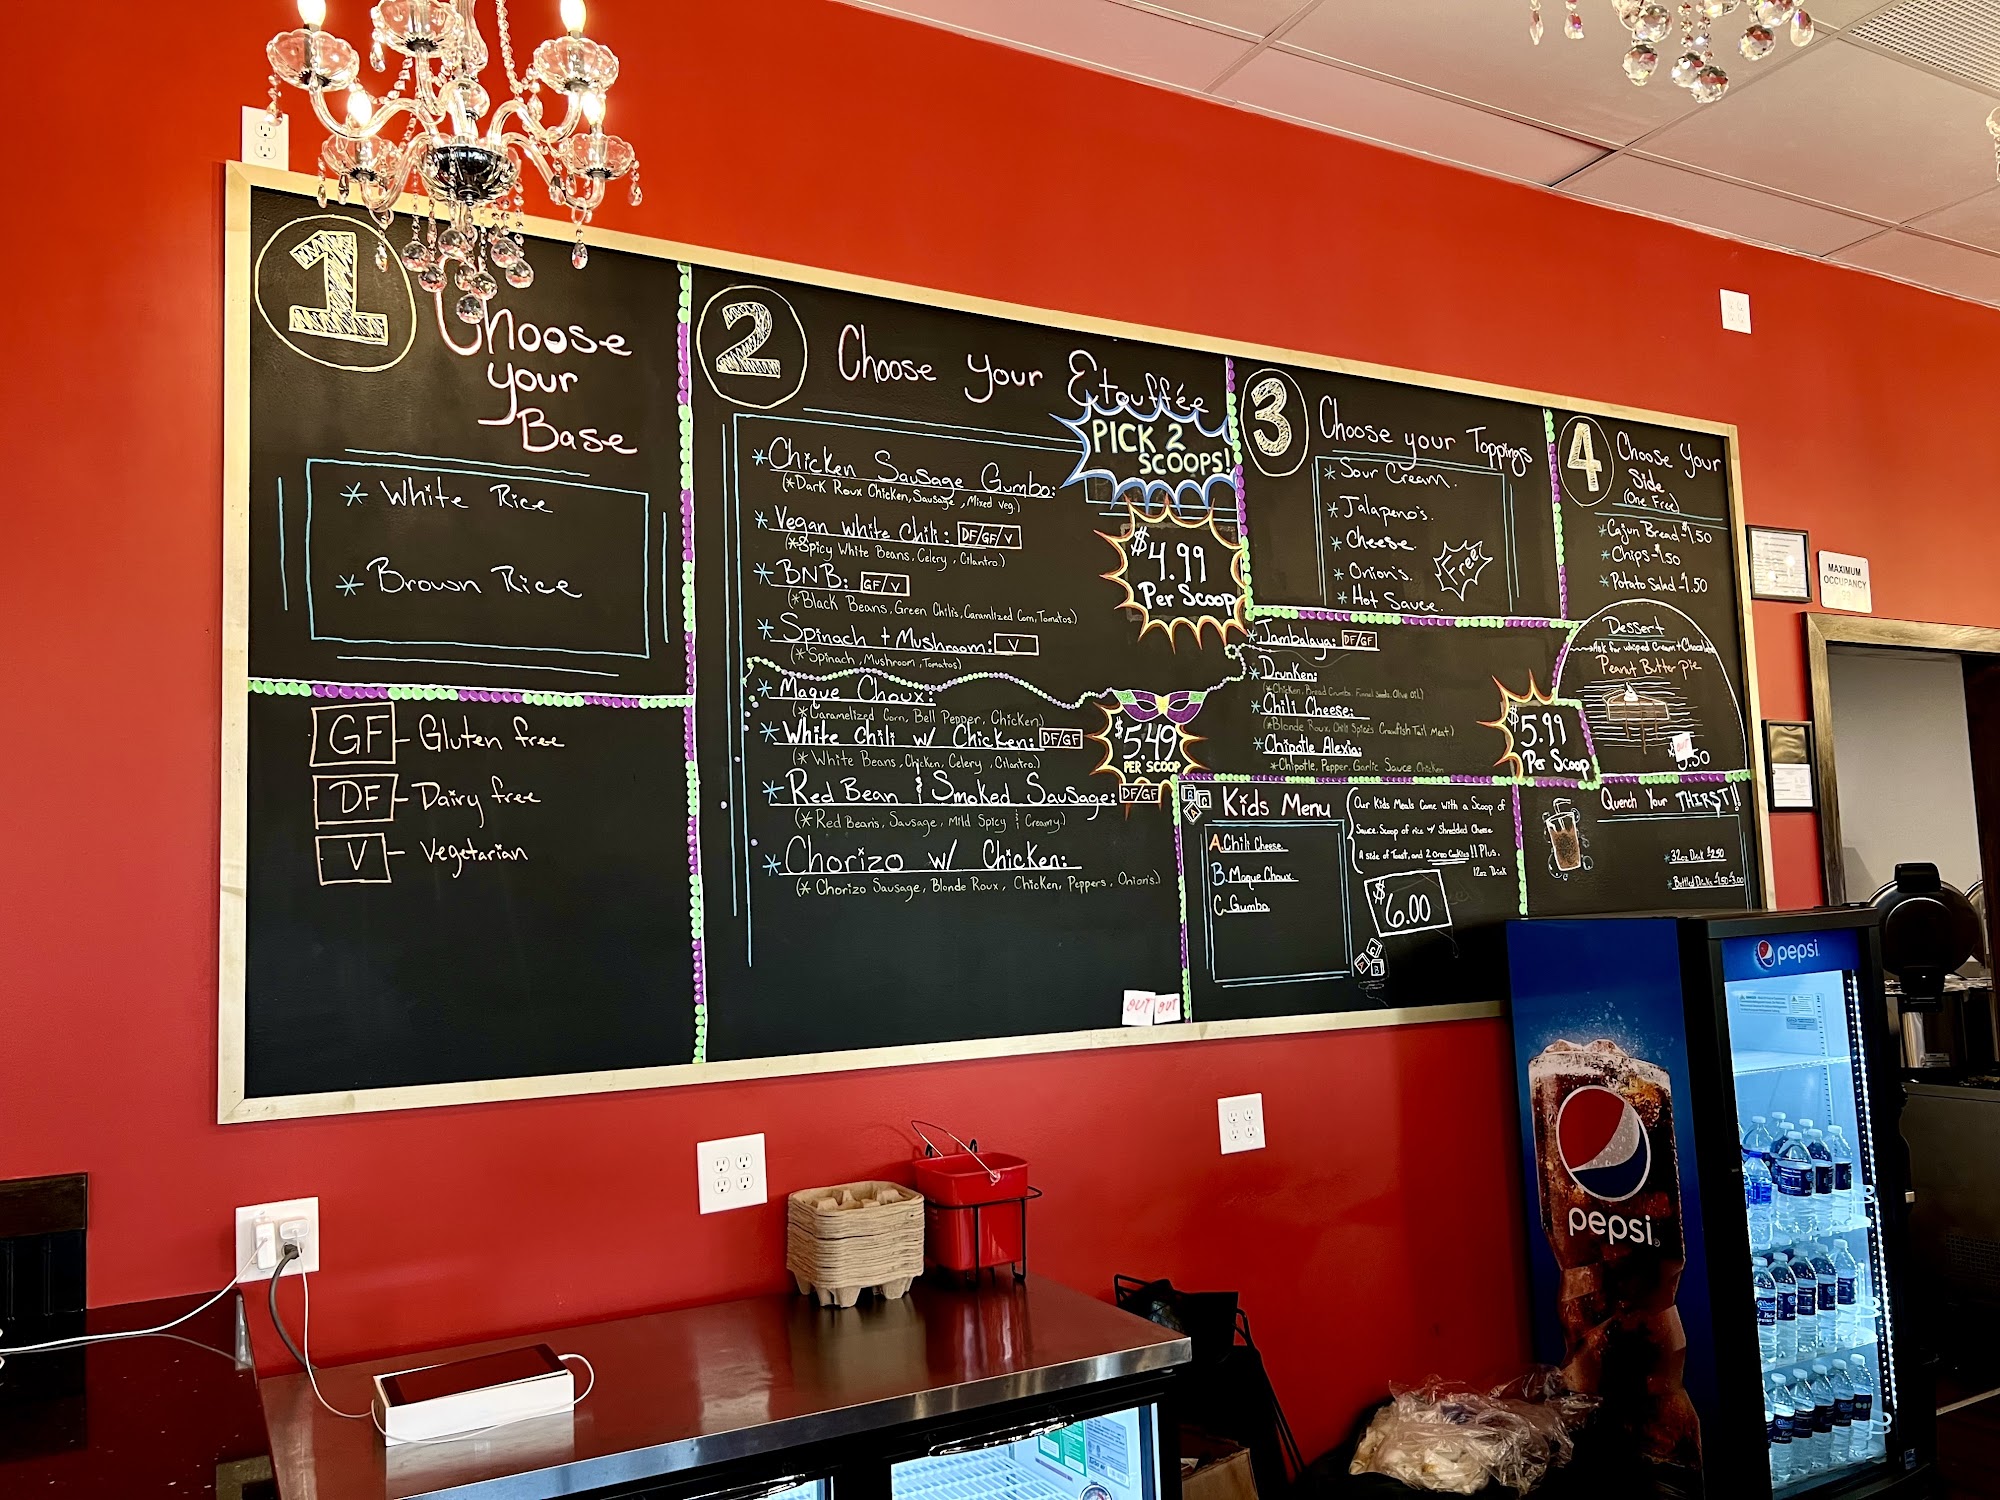 1
Choose
your
Base
* White Rice
* Brown Rice
GF - Gluten free
DF - Dairy free
V - Vegetarian
2
Choose your Etouffée
PICK 2
SCOOPS!
* Chicken Sausage Gumbo:
(*Dark Roux Chicken, Sausage, Mixed Veg.)
* Vegan White Chili: DF/GF/V
(*Spicy White Beans, Celery, Cilantro.)
* BNB: GF/V
(*Black Beans, Green Chili's, Caramlized Corn, Tomatos.)
* Spinach + Mushroom: V
(*Spinach, Mushroom, Tomatos)
$4.99
Per Scoop
* Maque Choux:
(*Caramelized Corn, Bell Pepper, Chicken.)
* White Chili w/ Chicken: DF/GF
(* White Beans, Chicken, Celery, Cilantro.)
* Red Bean & Smoked Sausage: DF/GF
(*Red Bean's, Sausage, Mild Spicy & Creamy.)
* Chorizo w/ Chicken:
(* Chorizo Sausage, Blonde Roux, Chicken, Peppers, Onion's.)
$5.49
PER SCOOP
OUT OUT
3
Choose your Toppings
* Sour Cream.
* Jalapeno's.
* Cheese.
* Onion's.
* Hot Sauce.
Free
* Jambalaya: DF/GF
* Drunken:
(*Chicken, Bread Crumbs, Olive Oil.)
* Chili Cheese:
(*Blonde Roux, Chili Spices Crawfish Tail Meat.)
* Chipotle Alexia:
*Chipotle, Pepper, Garlic Sauce, Chicken
$5.99
Per Scoop
4
Choose Your
Side
(One Free)
* Cajun Bread - $1.50
* Chips - 1.50
* Potato Salad - 1.50
Dessert
Ask for whipped Cream + Chocolate
Peanut Butter Pie
OUT
5.50
Kids Menu
A. Chili Cheese
B. Maque Choux
C. Gumbo
Our Kids Meals Come with a Scoop of
Sauce, Scoop of rice w/ Shredded Cheese
A side of Toast, and 2 Oreo Cookies!! Plus.
12oz Drink
$6.00
Quench Your THIRST!!
* 32oz Drink $2.50
* Bottled Drinks - 1.50 - 3.00
MAXIMUM
OCCUPANCY
pepsi
pepsi